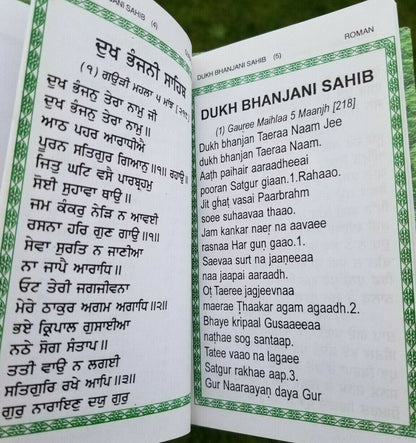 DUKH BHANJANI SAHIB (4)
ਦੁਖ ਭੰਜਨੀ ਸਾਹਿਬ
(੧) ਗਉੜੀ ਮਹਲਾ ੫ ਮਾਂਝ
ਦੁਖ ਭੰਜਨੁ ਤੇਰਾ ਨਾਮੁ ਜੀ
ਦੁਖ ਭੰਜਨੁ ਤੇਰਾ ਨਾਮੁ॥
ਆਠ ਪਹਰ ਆਰਾਧੀਐ
ਪੂਰਨ ਸਤਿਗੁਰ ਗਿਆਨੁ॥੧॥ ਰਹਾਉ॥
ਜਿਤੁ ਘਟਿ ਵਸੈ ਪਾਰਬ੍ਰਹਮੁ
ਸੋਈ ਸੁਹਾਵਾ ਥਾਉ॥
ਜਮ ਕੰਕਰੁ ਨੇੜਿ ਨ ਆਵਈ
ਰਸਨਾ ਹਰਿ ਗੁਣ ਗਾਉ॥੧॥
ਸੇਵਾ ਸੁਰਤਿ ਨ ਜਾਣੀਆ
ਨਾ ਜਾਪੈ ਆਰਾਧਿ॥
ਓਟ ਤੇਰੀ ਜਗਜੀਵਨਾ
ਮੇਰੇ ਠਾਕੁਰ ਅਗਮ ਅਗਾਧਿ॥੨॥
ਭਏ ਕ੍ਰਿਪਾਲ ਗੁਸਾਈਆ
ਨਠੇ ਸੋਗ ਸੰਤਾਪ॥
ਤਤੀ ਵਾਉ ਨ ਲਗਈ
ਸਤਿਗੁਰਿ ਰਖੇ ਆਪਿ॥੩॥
ਗੁਰੁ ਨਾਰਾਇਣੁ ਦਯੁ ਗੁਰੁ
DUKH BHANJANI SAHIB (5) ROMAN
DUKH BHANJANI SAHIB
(1) Gauree Maihlaa 5 Maanjh [218]
Dukh bhanjan Taeraa Naam Jee
dukh bhanjan Taeraa Naam.
Aaṭh paihair aaraadheeai
pooran Satgur giaan.1.Rahaao.
Jit ghaṭ vasai Paarbrahm
soee suhaavaa thaao.
Jam kankar naeṛ na aavaee
rasnaa Har guṇ gaao.1.
Saevaa surt na jaaṇeeaa
naa jaapai aaraadh.
Oṭ Taeree jagjeevnaa
maerae Ṭhaakar agam agaadh.2.
Bhaye kripaal Gusaaeeaa
naṭhae sog santaap.
Tatee vaao na lagaee
Satgur rakhae aap.3.
Gur Naaraayaṇ daya Gur